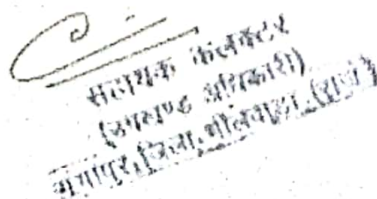 सहायक कलक्टर
(उपखण्ड अधिकारी)
गंगापुर, जिला, भीलवाड़ा (राज.)